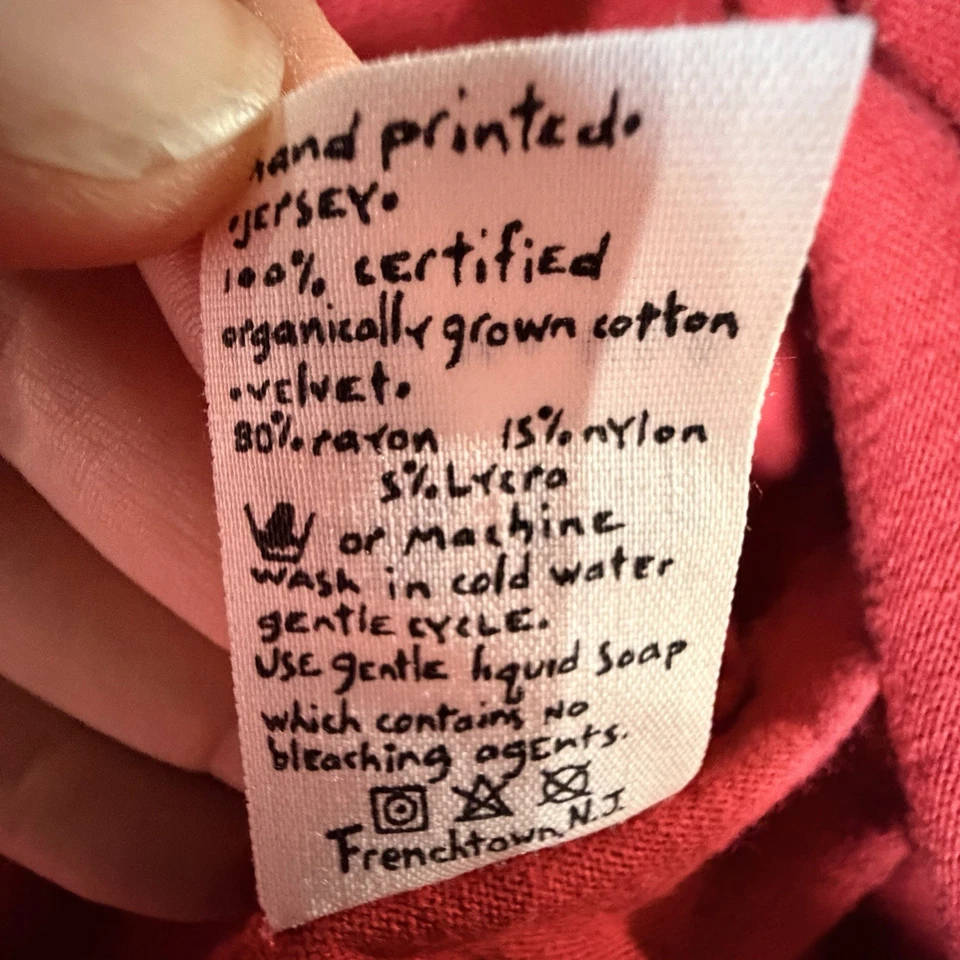 hand printed.
.JERSEY.
100% certified
organically grown cotton
.velvet.
80% rayon 15% nylon
5% Lycra
or machine
wash in cold water
gentle cycle.
Use gentle liquid soap
which contains no
bleaching agents.
Frenchtown N.J.